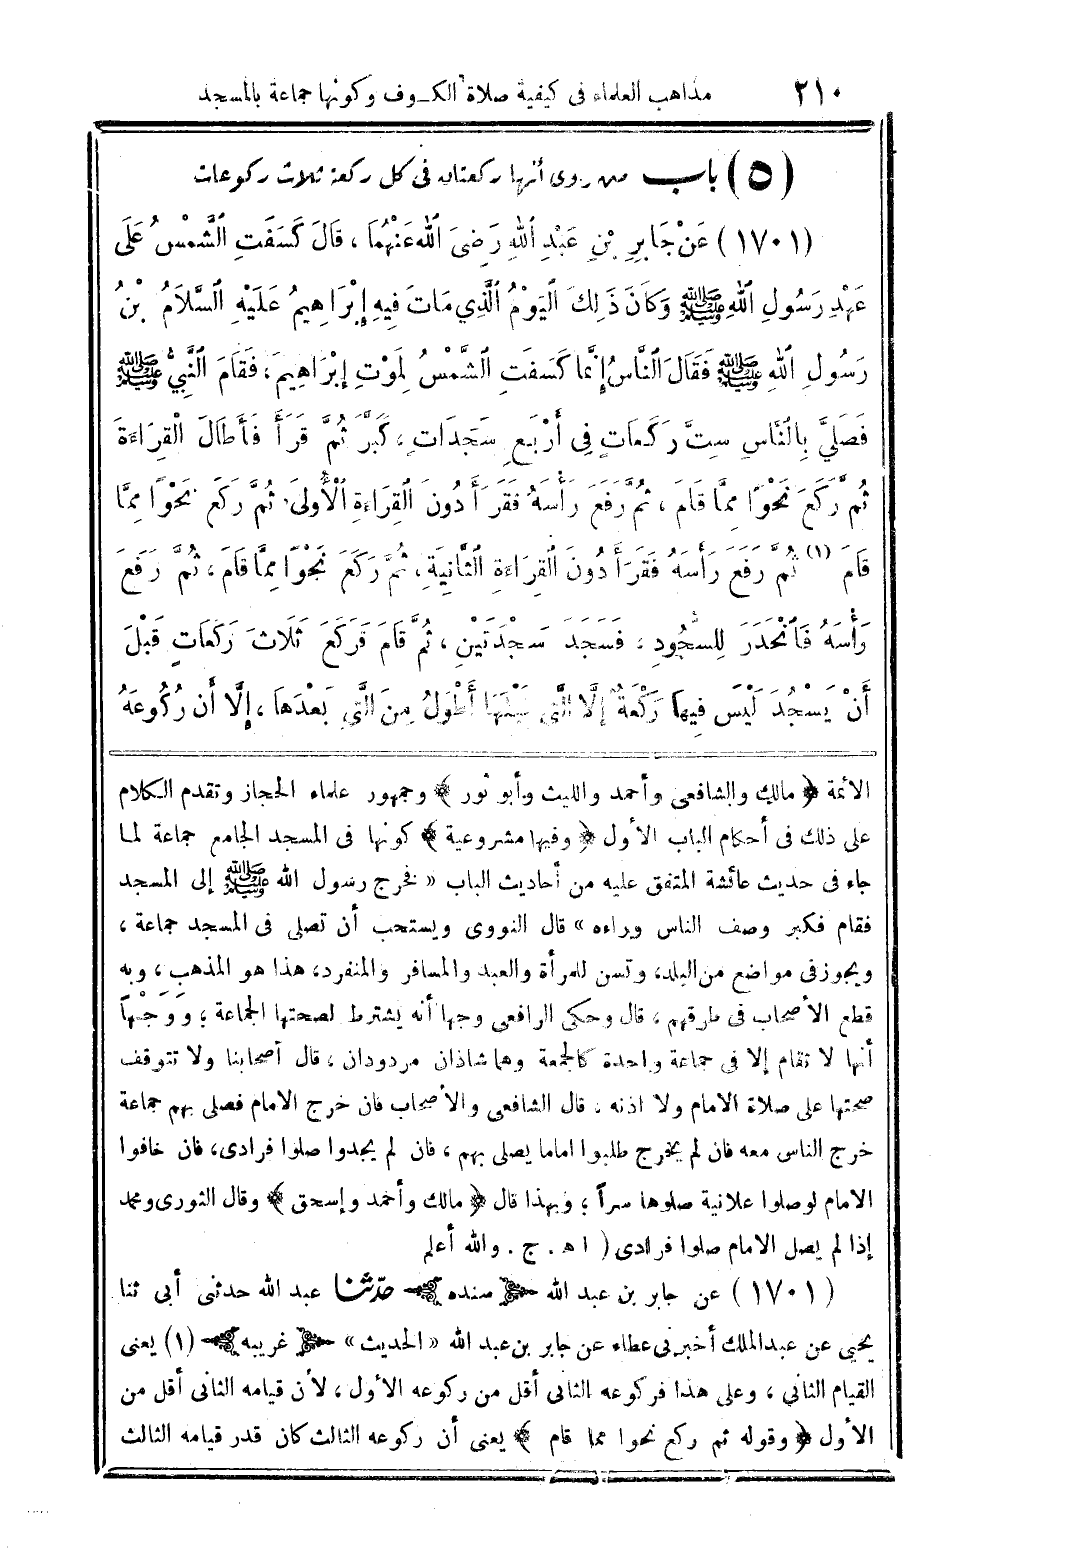 ٢١٠ مذاهب العلماء فى كيفية صلاة الكسوف وكونها جماعة بالمسجد
(٥) باب من روى أنها ركعتان فى كل ركعة ثلاث ركوعات
(١٧٠١) عَنْ جَابِرِ بْنِ عَبْدِ اللهِ رَضِىَ اللهُ عَنْهُمَا، قَالَ كَسَفَتِ الشَّمْسُ عَلَى
عَهْدِ رَسُولِ اللهِ ﷺ وَكَانَ ذَلِكَ الْيَوْمُ الَّذِي مَاتَ فِيهِ إِبْرَاهِيمُ عَلَيْهِ السَّلَامُ بْنُ
رَسُولِ اللهِ ﷺ فَقَالَ النَّاسُ إِنَّمَا كَسَفَتِ الشَّمْسُ لِمَوْتِ إِبْرَاهِيمَ، فَقَامَ النَّبِيُّ ﷺ
فَصَلَّى بِالنَّاسِ سِتَّ رَكَعَاتٍ فِى أَرْبَعِ سَجَدَاتٍ، كَبَّرَ ثُمَّ قَرَأَ فَأَطَالَ الْقِرَاءَةَ
ثُمَّ رَكَعَ نَحْوًا مِمَّا قَامَ، ثُمَّ رَفَعَ رَأْسَهُ فَقَرَأَ دُونَ الْقِرَاءَةِ الْأُولَى، ثُمَّ رَكَعَ نَحْوًا مِمَّا
قَامَ (١) ثُمَّ رَفَعَ رَأْسَهُ فَقَرَأَ دُونَ الْقِرَاءَةِ الثَّانِيَةِ، ثُمَّ رَكَعَ نَحْوًا مِمَّا قَامَ، ثُمَّ رَفَعَ
رَأْسَهُ فَانْحَدَرَ لِلسُّجُودِ، فَسَجَدَ سَجْدَتَيْنِ، ثُمَّ قَامَ فَرَكَعَ ثَلَاثَ رَكَعَاتٍ قَبْلَ
أَنْ يَسْجُدَ لَيْسَ فِيهَا رَكْعَةٌ إِلَّا الَّتِي قَبْلَهَا أَطْوَلُ مِنَ الَّتِي بَعْدَهَا، إِلَّا أَن رُكُوعَهُ
الأئمة ﴿ مالك والشافعى وأحمد والليث وأبو ثور ﴾ وجمهور علماء الحجاز وتقدم الكلام
على ذلك فى أحكام الباب الأول ﴿ وفيها مشروعية ﴾ كونها فى المسجد الجامع جماعة لما
جاء فى حديث عائشة المتفق عليه من أحاديث الباب « فخرج رسول الله ﷺ إلى المسجد
فقام فكبر وصف الناس وراءه » قال النووى ويستحب أن تصلى فى المسجد جماعة ،
ويجوز فى مواضع من البلد، وتسن للمرأة والعبد والمسافر والمنفرد، هذا هو المذهب، وبه
قطع الأصحاب فى طرقهم ، قال وحكى الرافعى وجها أنه يشترط لصحتها الجماعة ؛ وَوَجْهاً
أنها لا تقام إلا فى جماعة واحدة كالجمعة وهما شاذان مردودان ، قال أصحابنا ولا تتوقف
صحتها على صلاة الامام ولا اذنه ، قال الشافعى والأصحاب فان خرج الامام فصلى بهم جماعة
خرج الناس معه فان لم يخرج طلبوا اماما يصلى بهم ، فان لم يجدوا صلوا فرادى، فان خافوا
الامام لو صلوا علانية صلوها سراً ؛ وبهذا قال ﴿ مالك وأحمد وإسحق ﴾ وقال الثورى ومحمد
إذا لم يصل الامام صلوا فرادى ( اهـ . ج . والله أعلم
(١٧٠١) عن جابر بن عبد الله سنده حدّثنا عبد الله حدثنى أبى ثنا
يحيى عن عبدالملك أخبرنى عطاء عن جابر بن عبد الله «الحديث» غريبه (١) يعنى
القيام الثاني ، وعلى هذا فركوعه الثانى أقل من ركوعه الأول ، لأن قيامه الثانى أقل من
الأول ﴿ وقوله ثم ركع نحوا مما قام ﴾ يعنى أن ركوعه الثالث كان قدر قيامه الثالث